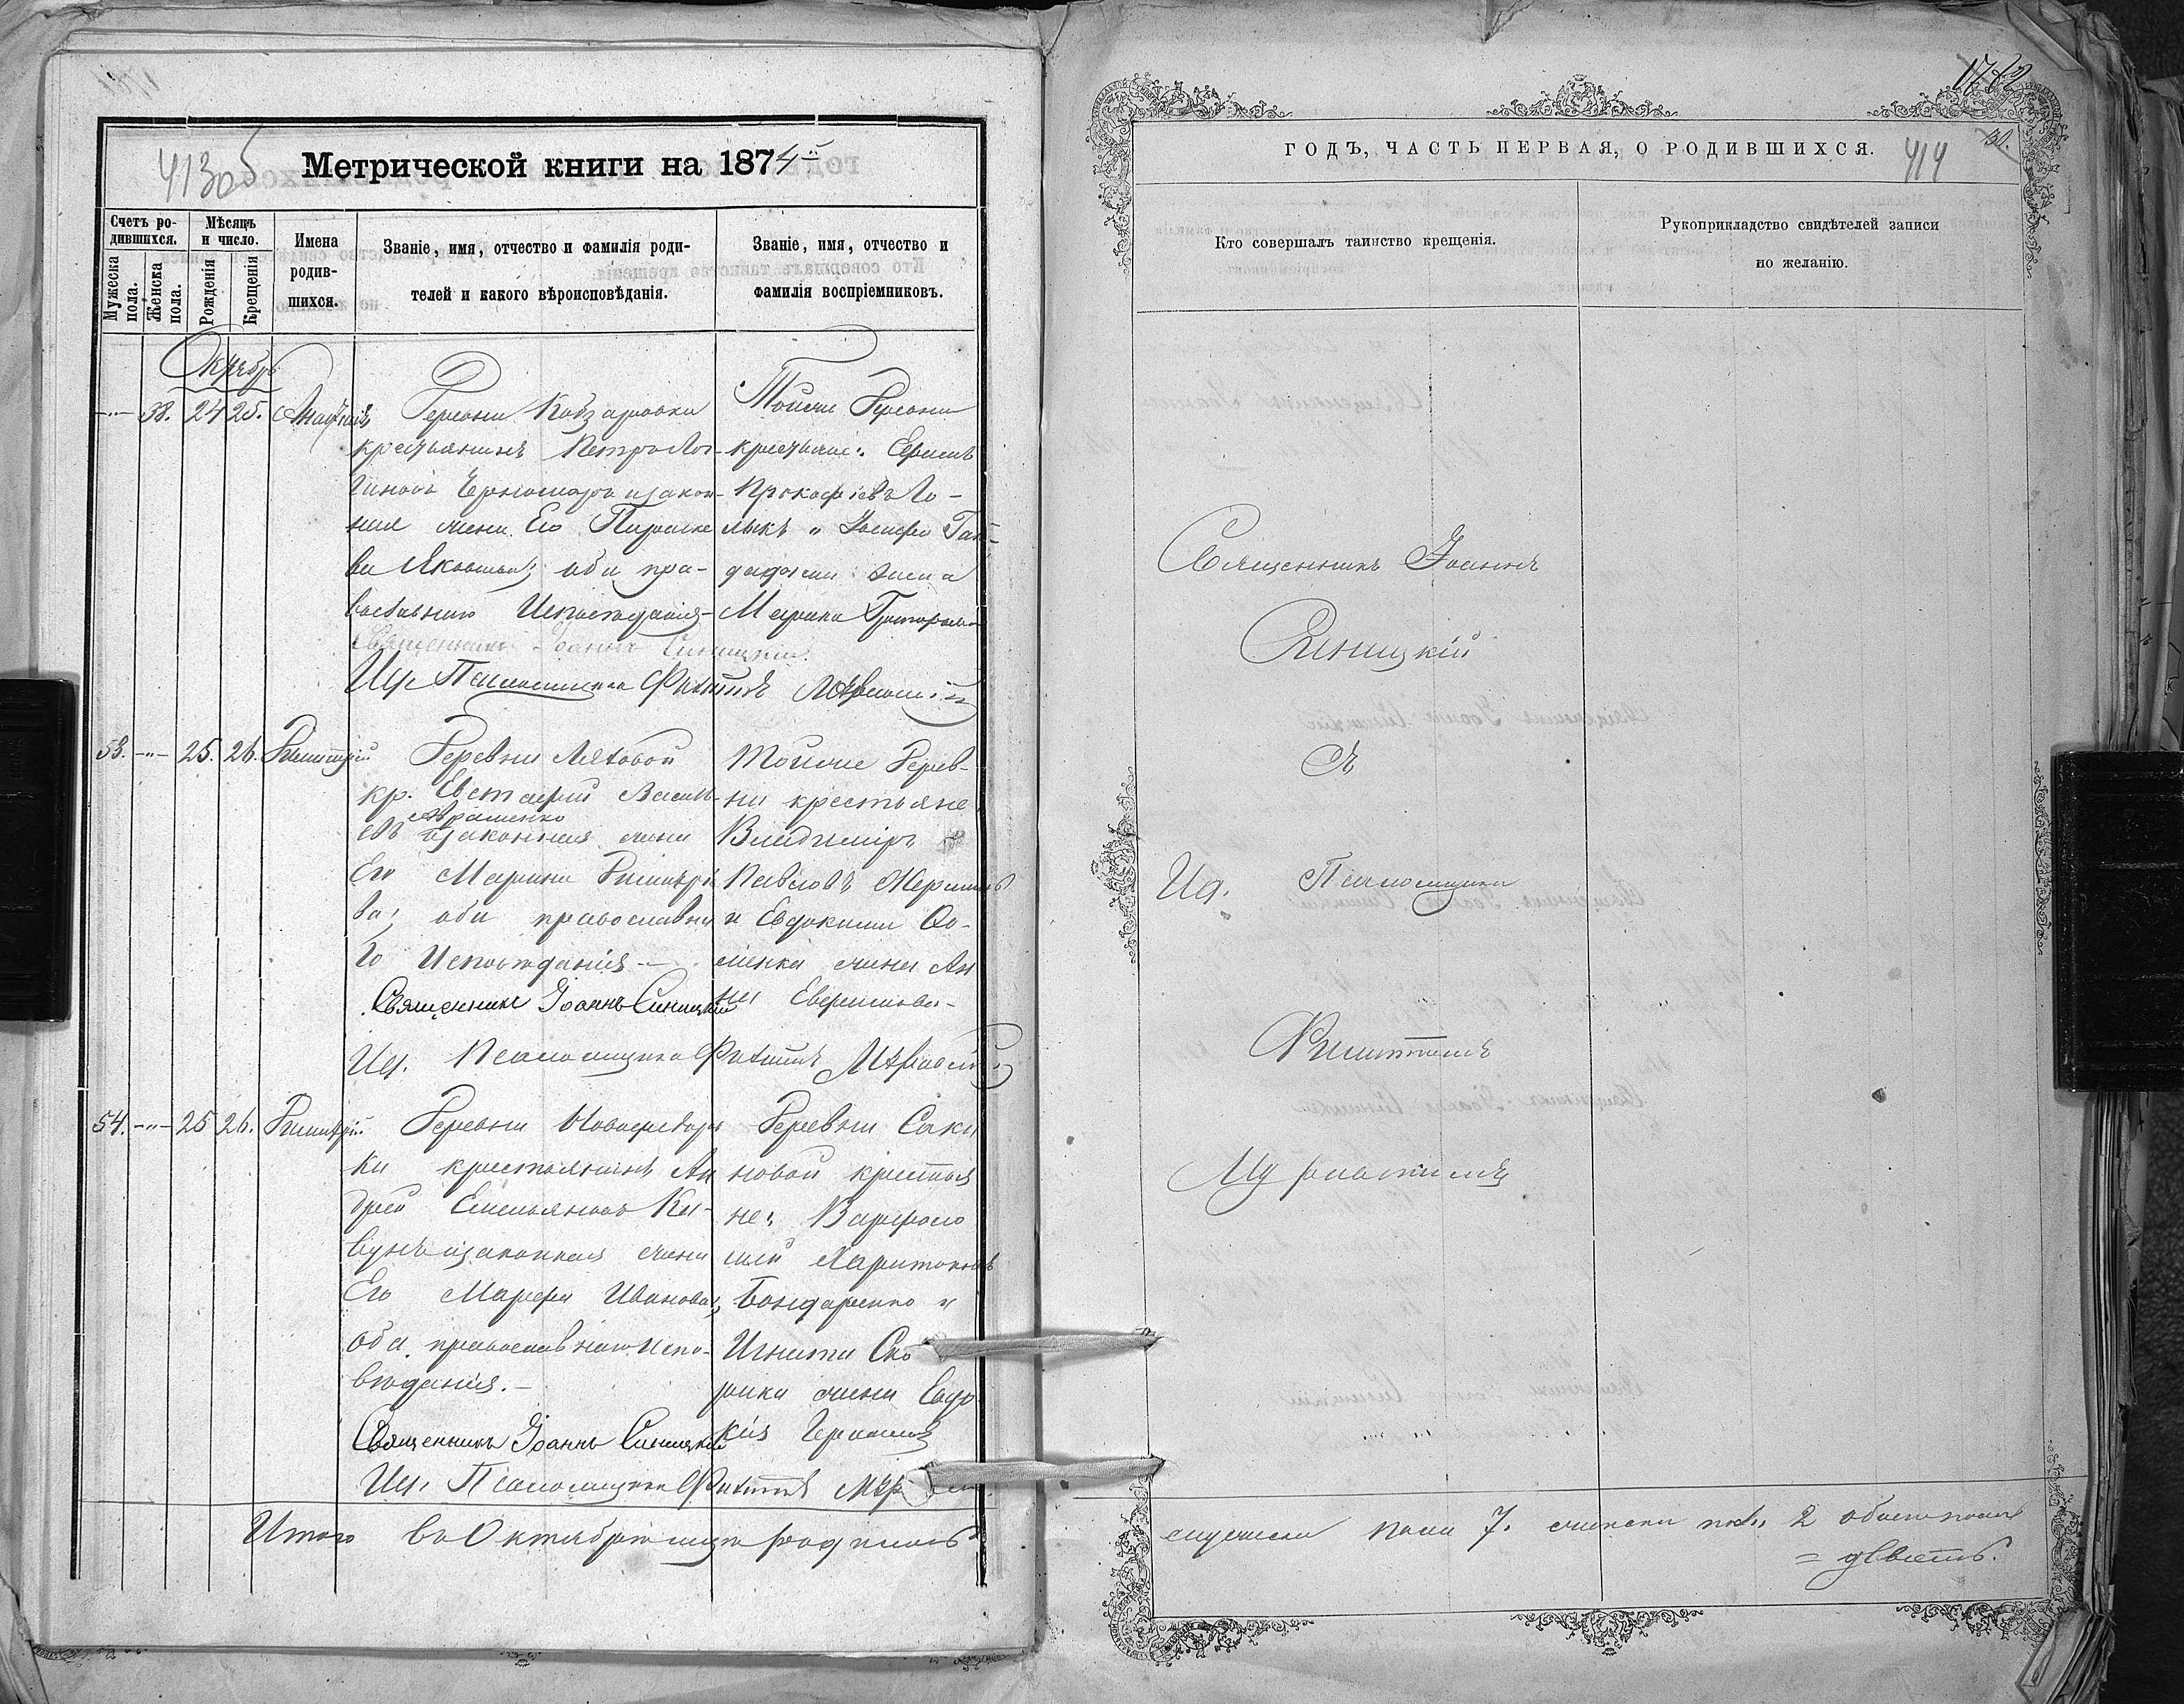 413об
Метрической книги на 1874й
Счетъ родившихся.
Мужеска пола.
Женска пола.
Мѣсяцъ и число.
Рожденія
Крещенія
Имена родившихся.
Званіе, имя, отчество и фамилія родителей и какого вѣроисповѣданія.
Званіе, имя, отчество и фамилія воспріемниковъ.
Октябрь
-"- 38. 24 25. Анастасія
Деревни Кобзаровки
крестьянинъ Петръ Лог-
гиновъ и закон-
ная жена Его Параске
ва Яковлева; оба пра-
вославнаго Исповѣданія-
Священникъ Іоаннъ Синицкій.
И. Псаломщика Филиппъ
Тойже Деревни
крестьяне: Ефимъ
Прокофіевъ Го-
лыкъ и Іосифа Гай-
дадыма жена
Марина Григорьева
53. -"- 25. 26. Димитрій
Деревни Ляховой
кр. Евстафій Василь-
евъ Авраменко и законная жена
Его Марина Димитрі
ва; оба православна
го Исповѣданія -
Священникъ Іоаннъ Синицкій
И. Псаломщика Филиппъ
Тойже Дерев-
ни крестьяне
Владиміръ
Павловъ
и Евдокима Ѳо-
менка жена Ан
на
54. -"- 25 26. Димитрій
Деревни
ки крестьянинъ Ан
дрей Емельяновъ Ки-
вунъ и законная жена
Его Марфа Иванова,
оба православнаго испо-
вѣданія. -
Священникъ Іоаннъ Синицкій
И. Псаломщика Филиппъ
Деревни Саки
новой крестья
не: Варфоло
мей Харитоновъ
Бондаренко и
Игната Ско
рика жена Евдо
кія
Итого въ Октябрѣ мца родилось
1782
30.
414
ГОДЪ, ЧАСТЬ ПЕРВАЯ, О РОДИВШИХСЯ.
Кто совершалъ таинство крещенія.
Рукоприкладство свидѣтелей записи
по желанію.
Священникъ Іоаннъ
Синицкій
Съ
Ид. Псаломщика
Филиппомъ
мужеска пола 7. женска пола 2 обоего пола
= девять.